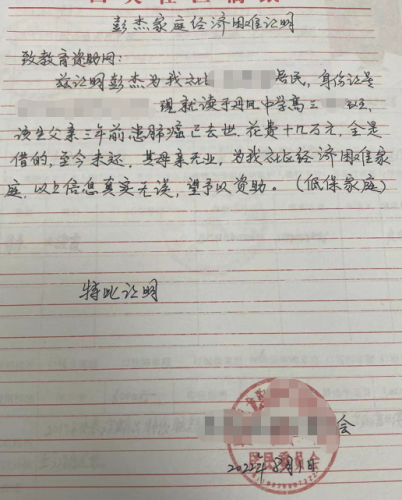 彭杰家庭经济困难证明
致教育逐助网：
兹证明彭杰为我社区 居民，身份证是
现就读于丹凤中学高三
该生父亲三年前患肺癌已去世，花费十几万元，全是
借的，至今未还，其母亲无业，为我社区经济困难家
庭，以上信息真实无误，望予以资助。（低保家庭）
特此证明
会
居民委员会
2022年8月1日